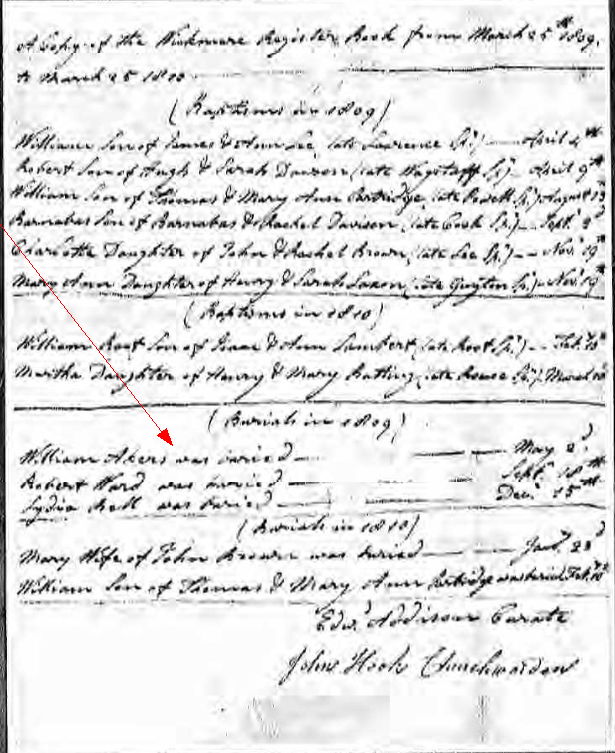 A Copy of the Wickmere Register Book from March 25th 1809,
to March 25 1810
(Baptisms in 1809)
William Son of James & Ann Lee (late Lawrence Sp.r) April 4th
Robert Son of Hugh & Sarah Dawson (late Wagstaff Sp.r) April 9th
William Son of Thomas & Mary Ann Partridge (late Powell Sp.r) August 13
Barnabas Son of Barnabas & Rachel Davison (late Cook Sp.r) Sept. 3d
Charlotte Daughter of John & Rachel Brown (late Lee Sp.r) Nov.r 19th
Mary Ann Daughter of Henry & Sarah Saxon (late Guyton Sp.r) Nov.r 19th
(Baptisms in 1810)
William Root Son of Isaac & Ann Lambert (late Root Sp.r) Feb.
Martha Daughter of Henry & Mary (late Sp.r) March
(Burials in 1809)
William Akers was buried May 2d
Robert Ward was buried Sept. 18th
Lydia Bell was buried Dec.r 15th
(Burials in 1810)
Mary Wife of John Brown was buried Jan.y 23d
William Son of Thomas & Mary Ann Partridge was buried Feb.
Edw.d Addison Curate
John Hook Churchwarden